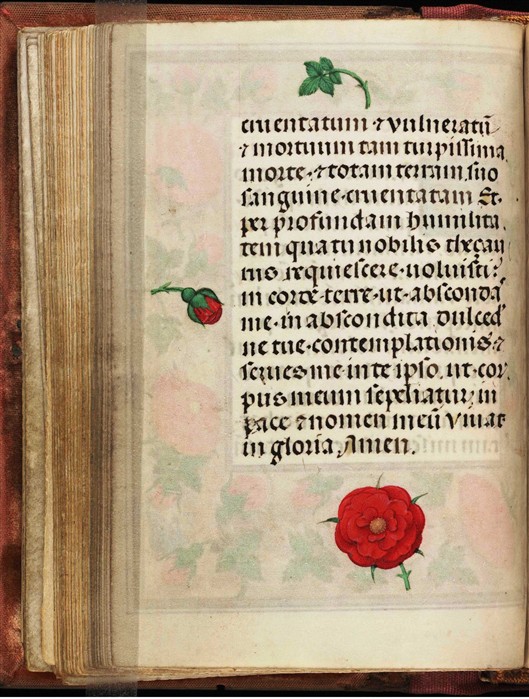 cruentatum ⁊ vulneratū
⁊ mortuum tam turpissima
morte·⁊ totam terram suo
sanguine·cruentatam Et·
per profundam humilita
tem qua tu nobilis thezau
rus requiescere·uoluisti:
in corde terre·ut·absconda
me·in abscondita dulced
ne tue·contemplationis·⁊
serues me in te ipso.ut·cor
pus meum sepeliatur; in
pace ⁊ nomen meū viuat
in gloria, Amen.